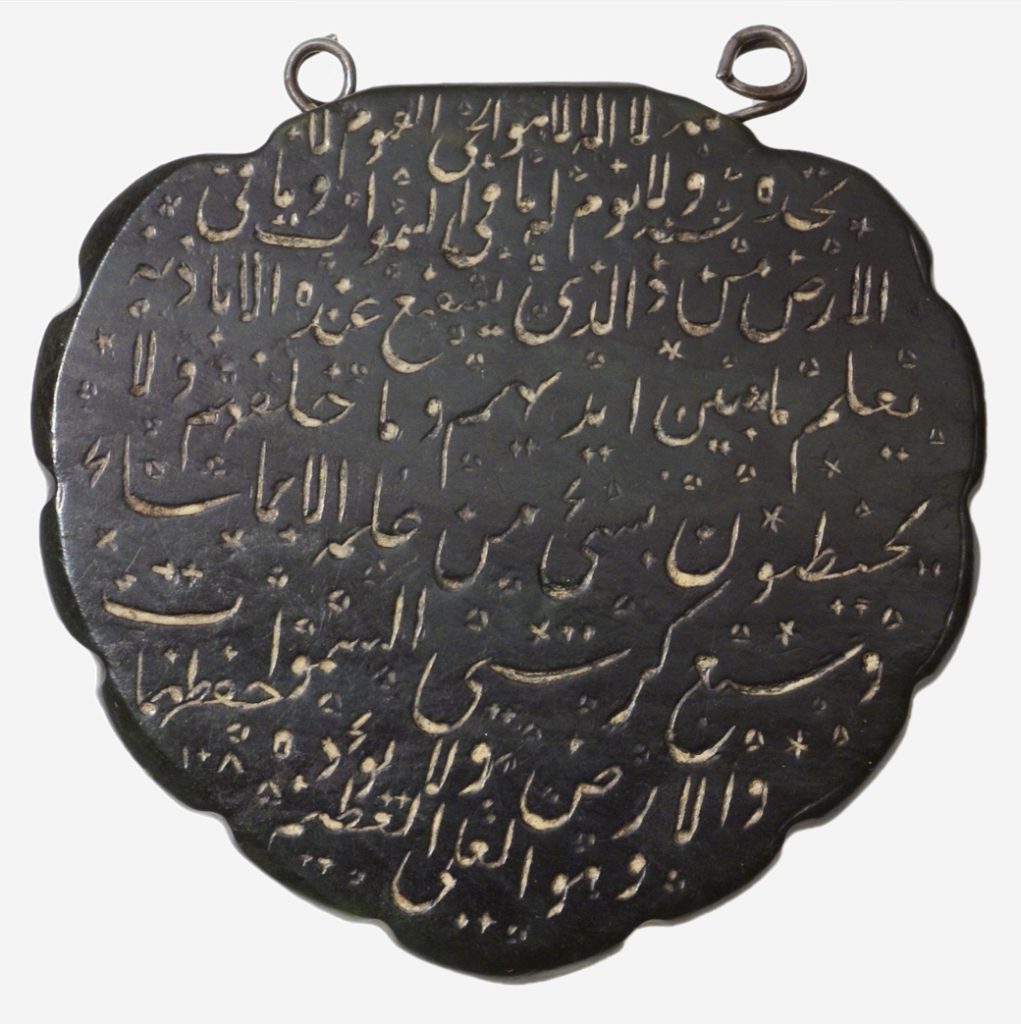 لا اله الا هو الحي القيوم لا
تخذه سنه ولا نوم له ما في السموات وما في
الارض من ذ الذي يشفع عنده الا باذنه
يعلم ما بين ايديهم وما خلفهم ولا
يحيطون بشئ من علمه الا بما شاء
وسع كرسي السموات
والارض ولا يؤده حفظهما
وهو العلي العظيم
١٠٨